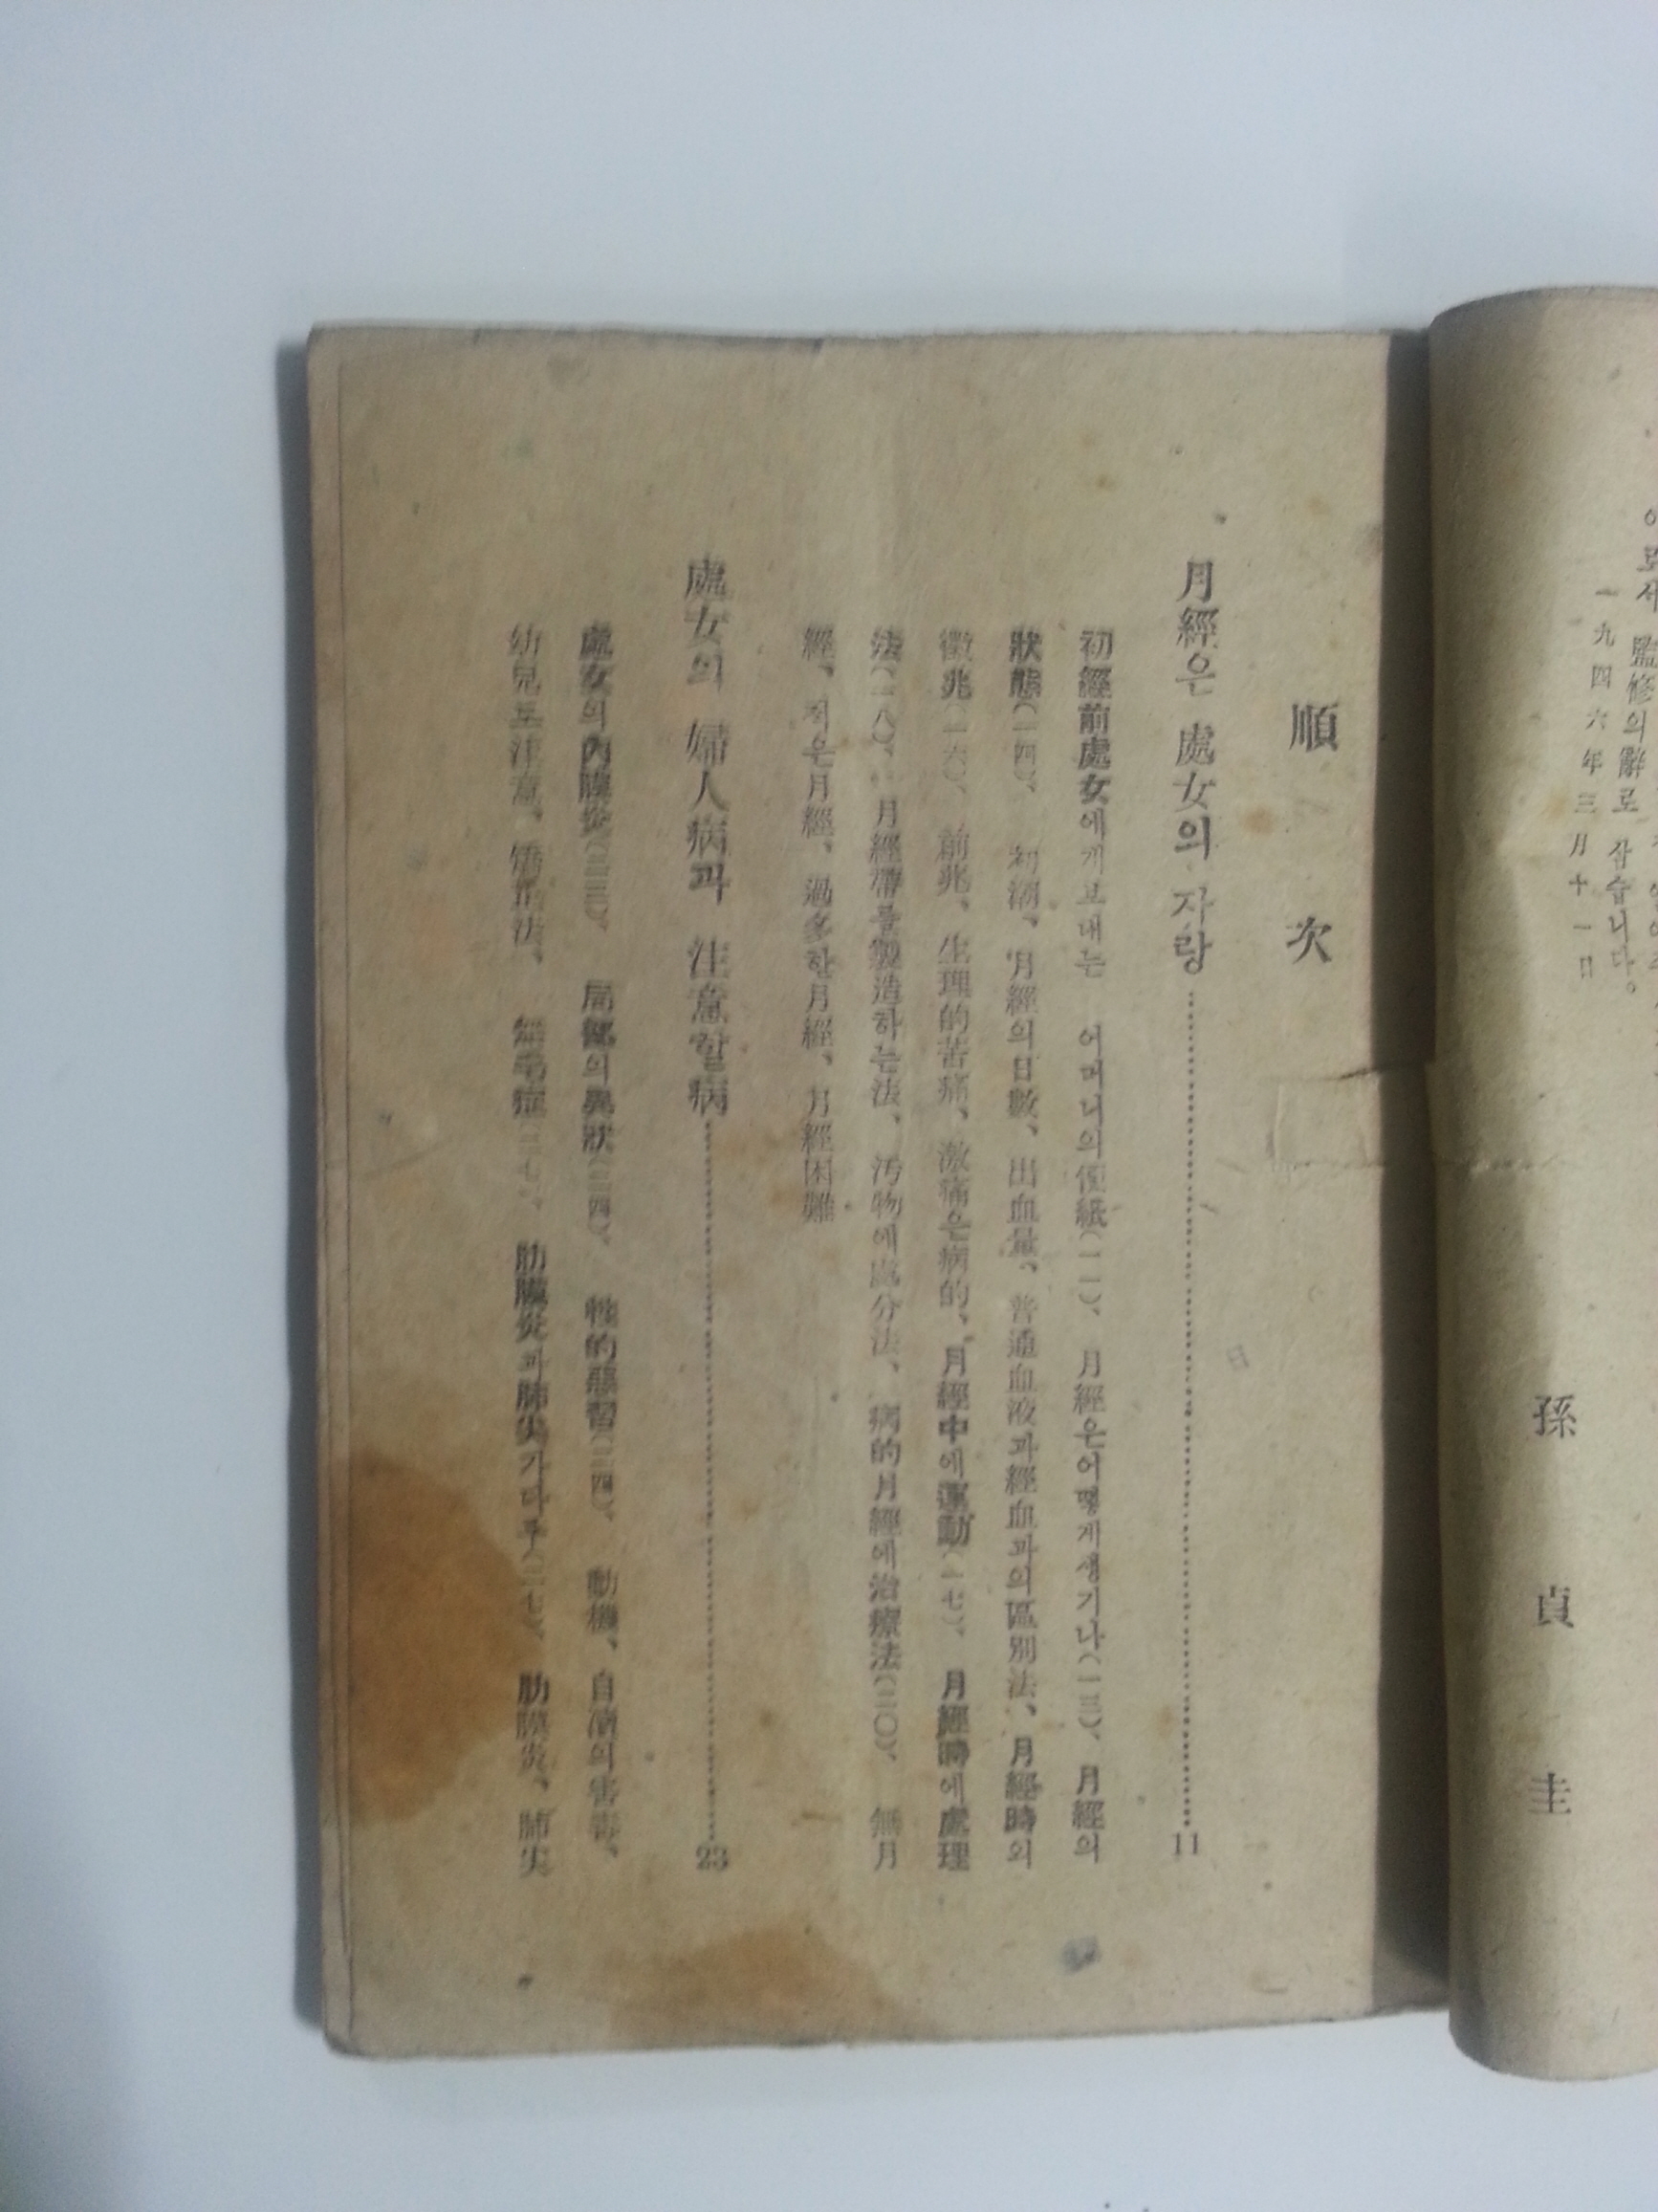 이로서 監修의辭로 삼습니다。
一九四六年三月十一日
孫貞圭
順次
月經은 處女의자랑……11
初經前處女에게보내는 어머니의便紙(一一)、月經은어떻게생기나(一三)、月經의
狀態(一四)、初潮、月經의日數、出血量、普通血液과經血과의區別法、月經時의
徵兆(一六)、前兆、生理的苦痛、激痛은病的、月經中에運動(一七)、月經時에處理
法(一八)、月經帶를製造하는法、汚物에處分法、病的月經에治療法(二〇)、無月
經、적은月經、過多한月經、月經困難
處女의 婦人病과 注意할病……23
處女의內膜炎(二三)、局部의異狀(二四)、性的惡習(二四)、動機、自瀆의害毒、
幼兒도注意、矯正法、無毛症(二七)、肋膜炎과肺尖가다루(二七)、肋膜炎、肺尖